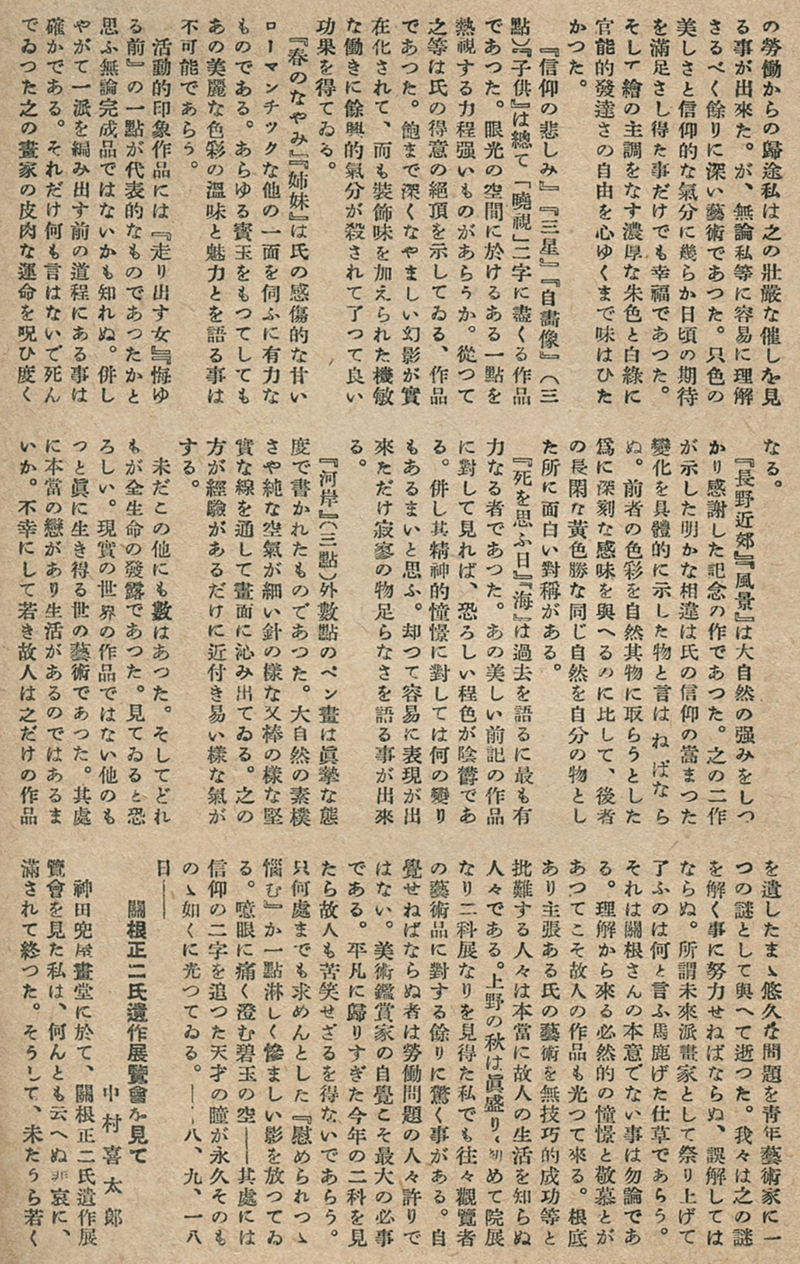 の勞働からの歸途私は之の壯嚴な催しを見
る事が出來た。が、無論私等に容易に理解
さるべく餘りに深い藝術であつた。只色の
美しさと信仰的な氣分に幾らか日頃の期待
を滿足さし得た事だけでも幸福であつた。
そして繪の主調をなす濃厚な朱色と白綠に
官能的發達さの自由を心ゆくまで味はひた
かつた。
『信仰の悲しみ』『三星』『自畵像』(三
點)『子供』は總て「曉視」二字に盡くる作品
であつた。眼光の空間に於けるある一點を
熱視する力程强いものがあらうか。從つて
之等は氏の得意の絕頂を示してゐる、作品
であつた。飽まで深くなやましい幻影が實
在化されて、而も裝飾味を加えられた機敏
な働きに餘興的氣分が殺されて了つて良い
功果を得てゐる。
『春のなやみ』『姉妹』は氏の感傷的な甘い
ローマンチックな他の一面を伺ふに有力な
ものである。あらゆる寳玉をもつてしても
あの美麗な色彩の溫味と魅力とを語る事は
不可能であらう。
活動的印象作品には『走り出す女』『悔ゆ
る前』の一點が代表的なものであつたかと
思ふ無論完成品ではないかも知れぬ。併し
やがて一派を編み出す前の道程にある事は
確かである。それだけ何も言はないで死ん
でゐつた之の畫家の皮肉な運命を呪ひ度く
なる。
『長野近郊』『風景』は大自然の强みをしつ
かり感謝した記念の作であつた。之の二作
が示した明かな相違は氏の信仰の當まつた
變化を具體的に示した物と言はねばなら
ぬ。前者の色彩を自然其物に取らうとした
爲に深刻な感味を與へるのに比して、後者
の長閑な黃色勝な同じ自然を自分の物とし
た所に面白い對稱がある。
『死を思ふ日』『海』は過去を語るに最も有
力なる者であつた。あの美しい前記の作品
に對して見れば、恐ろしい程色が陰欝であ
る。併し其精神的憧憬に對しては何の變り
もあるまいと思ふ。却つて容易に表現が出
來ただけ寂寥の物足らなさを語る事が出來
る。
『河岸』(三點)外數點のペン畫は眞摯な態
度で書かれたものであつた。大自然の素樸
さや純な空氣が細い針の樣な又棒の樣な堅
實な線を通して畫面に沁み出てゐる。之の
方が經驗があるだけに近付き易い樣な氣が
する。
未だこの他にも數はあつた。そしてどれ
もが全生命の發露であつた。見てゐると恐
ろしい。現實の世界の作品ではない他のも
つと眞に生き得る世の藝術であつた。其處
に本當の戀があり生活があるのではあるま
いか。不幸にして若き故人は之だけの作品
を遺したまゝ悠久な問題を靑年藝術家に一
つの謎として與へて逝つた。我々は之の謎
を解く事に努力せねばならぬ、誤解しては
ならぬ。所謂未來派畫家として祭り上げて
了ふのは何と言ふ馬鹿げた仕草であらう。
それは關根さんの本意でない事は勿論であ
る。理解から來る必然的の憧憬と敬慕とが
あつてこそ故人の作品も光つて來る。根底
あり主張ある氏の藝術を無技巧的成功等と
批難する人々は本當に故人の生活を知らぬ
人々である。上野の秋は眞盛り、初めて院展
なり二科展なりを見得た私でも往々觀覽者
の藝術品に對する餘りに驚く事がある。自
覺せねばならぬ者は勞働問題の人々許りで
はない。美術鑑賞家の自覺こそ最大の必事
である。平凡に歸りすぎた今年の二科を見
たら故人も苦笑せざるを得ないであらう。
只何處までも求めんとした『慰められつゝ
惱む』か一點淋しく慘ましい影を放つてゐ
る。噫眼に痛く澄む碧玉の空――其處には
信仰の二字を追つた天才の瞳が永久そのも
のゝ如くに光つてゐる。――八、九、一八
日――
關根正二氏遺作展覽會を見て
中村喜太郞
神田兜屋畫堂に於て、關根正二氏遺作展
覽會を見た私は、何んとも云へぬ悲哀に、
滿されて終つた。そうして、未だうら若く